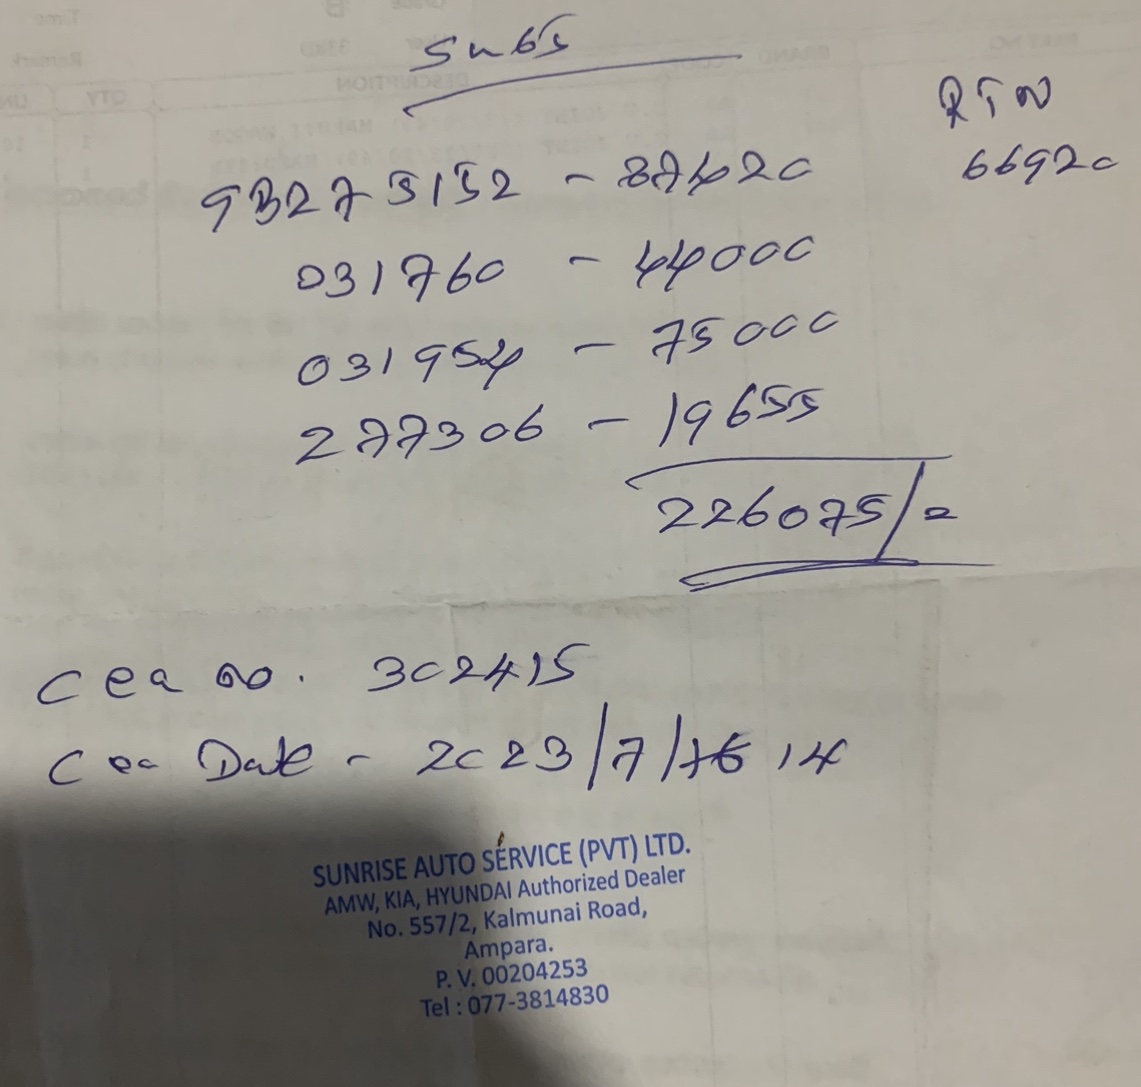 Subs
RTN
66920
932275152 - 87420
031760 - 44000
031954 - 75000
277306 - 19655
226075/=
Cea no. 302415
Cea Date - 2023/7/16 14
SUNRISE AUTO SERVICE (PVT) LTD.
AMW, KIA, HYUNDAI Authorized Dealer
No. 557/2, Kalmunai Road,
Ampara.
P. V. 00204253
Tel : 077-3814830